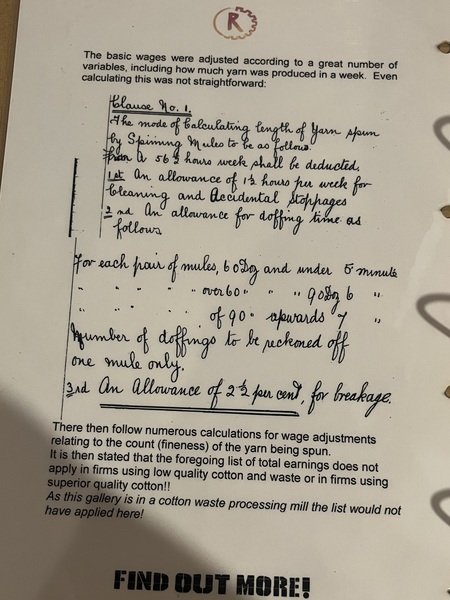 R
The basic wages were adjusted according to a great number of
variables, including how much yarn was produced in a week. Even
calculating this was not straightforward:
Clause No. 1.
The mode of Calculating length of Yarn spun
by Spinning Mules to be as follows.
From A 56½ hours week shall be deducted.
1st An allowance of 1½ hours per week for
Cleaning and Accidental Stoppages
2nd An allowance for doffing time as
follows
For each pair of mules, 60 Doz and under 5 minute
" " " " over 60 " " " 90 Doz 6 "
" " " " of 90 " upwards 7 "
Number of doffings to be reckoned off
one mule only.
3rd An Allowance of 2½ per cent, for breakage.
There then follow numerous calculations for wage adjustments
relating to the count (fineness) of the yarn being spun.
It is then stated that the foregoing list of total earnings does not
apply in firms using low quality cotton and waste or in firms using
superior quality cotton!!
As this gallery is in a cotton waste processing mill the list would not
have applied here!
FIND OUT MORE!